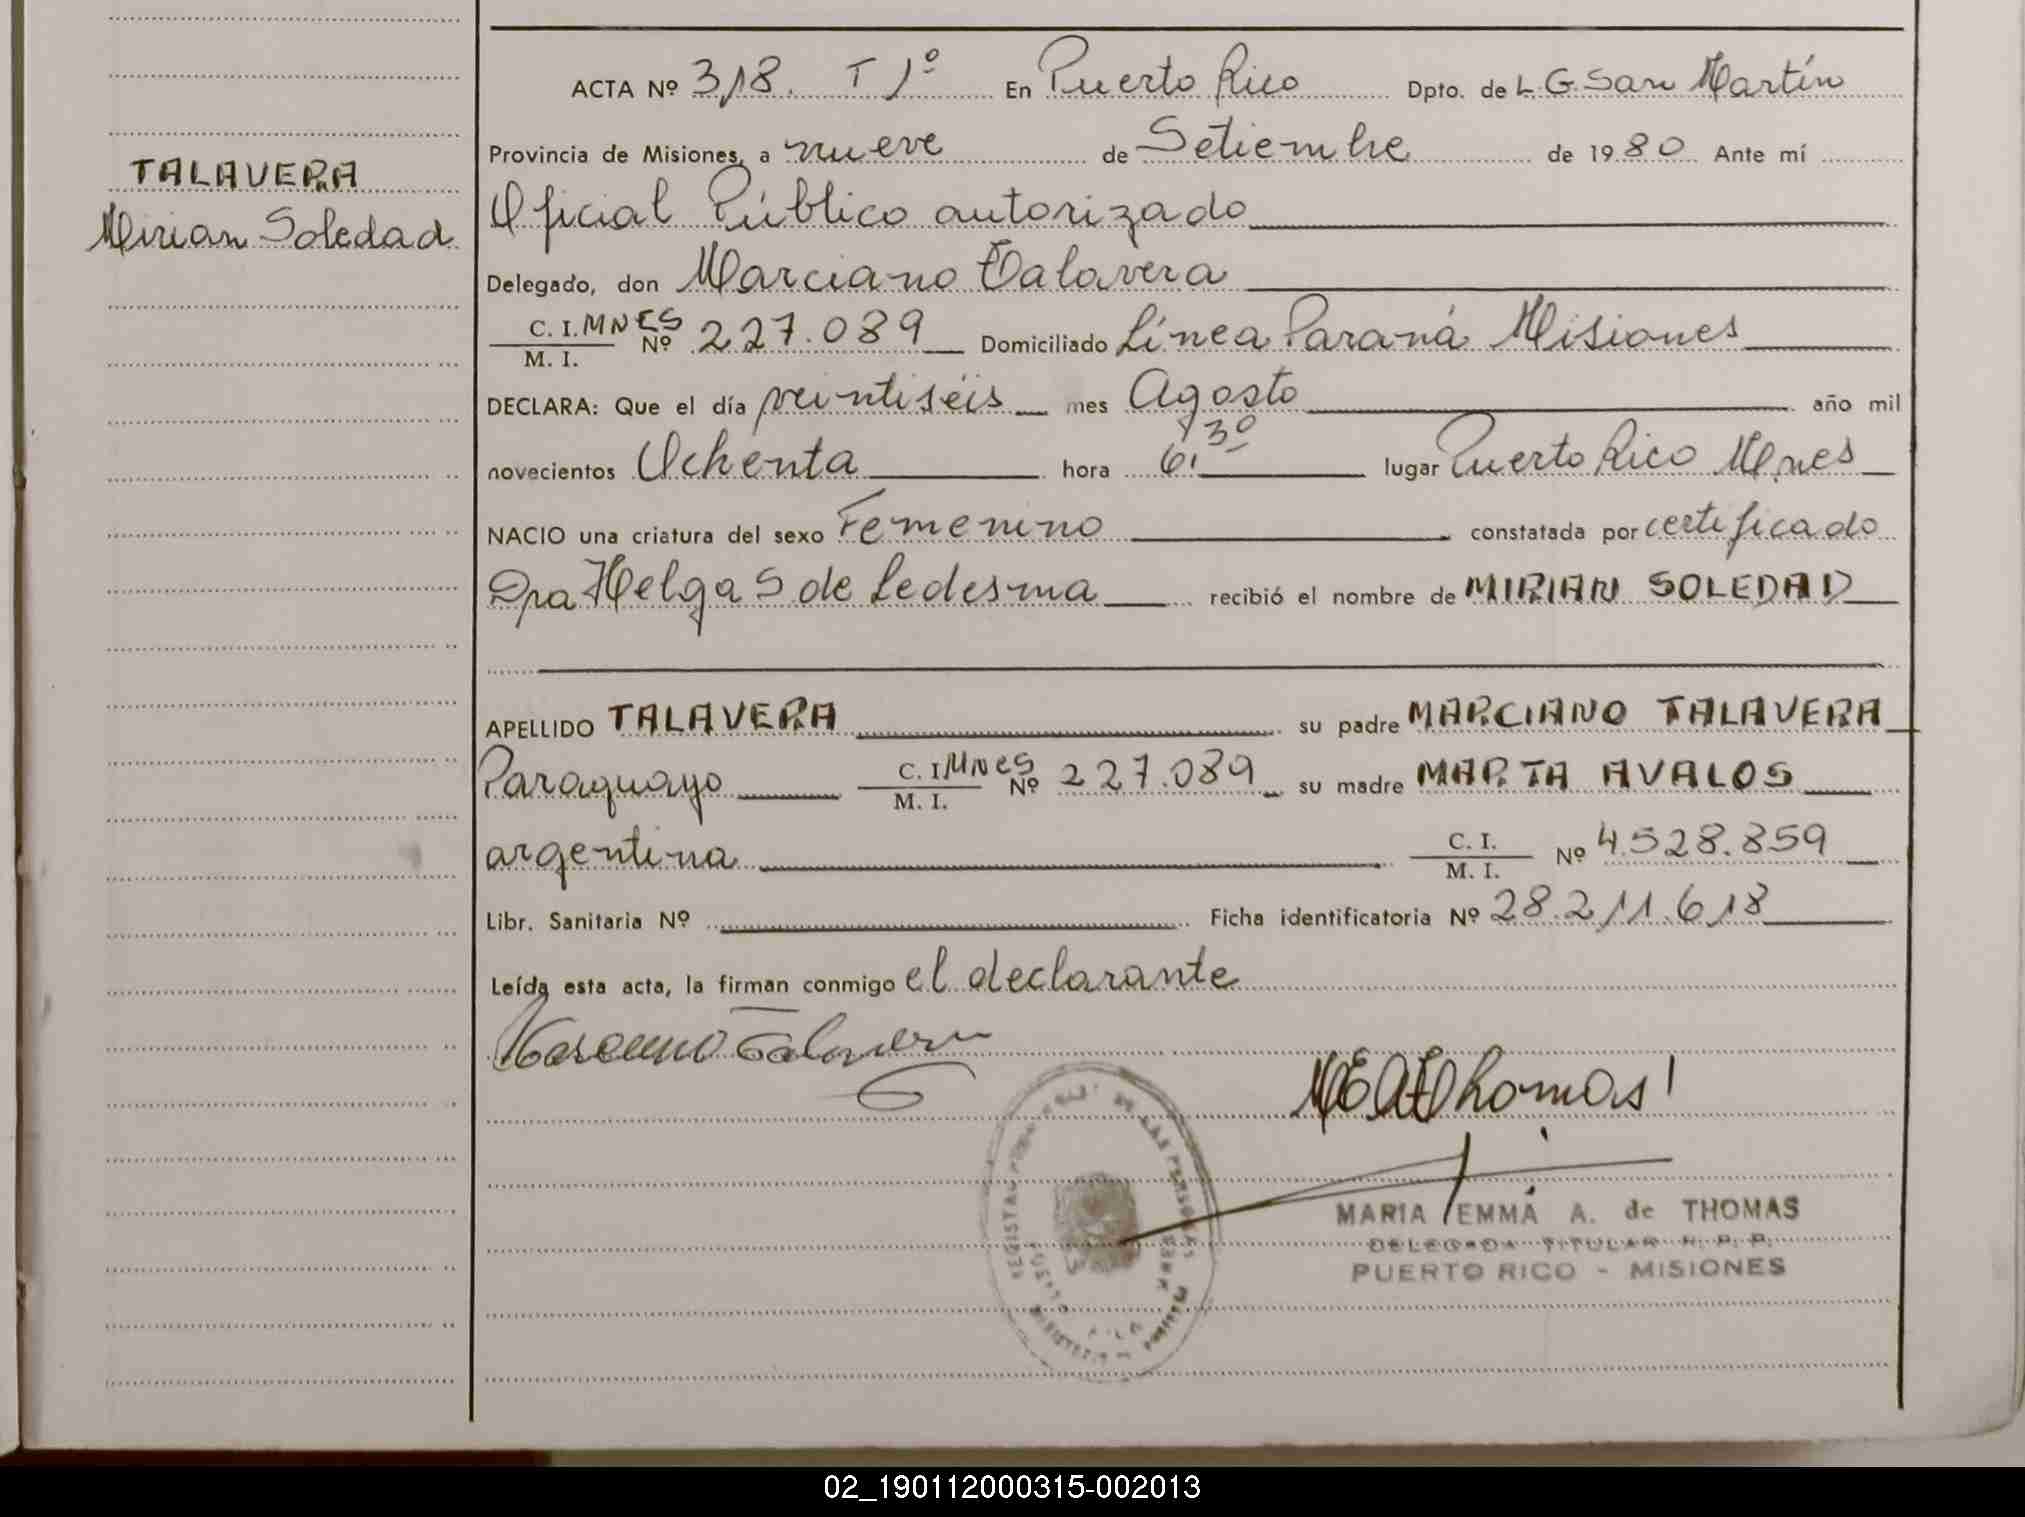 TALAVERA
Mirian Soledad
ACTA Nº 318. T 1º En Puerto Rico Dpto. de L. G. San Martín
Provincia de Misiones, a nueve de Setiembre de 1980 Ante mí
Oficial Público autorizado
Delegado, don Marciano Talavera
C. I. MNES
M. I. Nº 227.089 Domiciliado Línea Paraná Misiones
DECLARA: Que el día veintiséis mes Agosto año mil
novecientos Ochenta hora 6:30 lugar Puerto Rico Mnes
NACIO una criatura del sexo Femenino constatada por certificado
Dra Helga S de Ledesma recibió el nombre de MIRIAN SOLEDAD
APELLIDO TALAVERA su padre MARCIANO TALAVERA
Paraguayo C. I. Mnes M. I. Nº 227.089 su madre MARTA AVALOS
argentina C. I. M. I. Nº 4.528.859
Libr. Sanitaria Nº Ficha identificatoria Nº 28.211.618
Leída esta acta, la firman conmigo el declarante
Marciano Talavera
MEAThomas
MARIA EMMA A. de THOMAS
DELEGADA TITULAR R. P. P.
PUERTO RICO - MISIONES
02_190112000315-002013